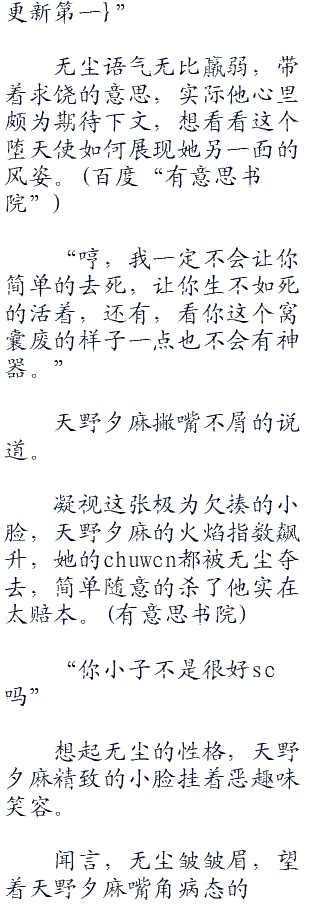 更新第一}”
无尘语气无比羸弱，带
着求饶的意思，实际他心里
颇为期待下文，想看看这个
堕天使如何展现她另一面的
风姿。(百度“有意思书
院”)
“哼，我一定不会让你
简单的去死，让你生不如死
的活着，还有，看你这个窝
囊废的样子一点也不会有神
器。”
天野夕麻撇嘴不屑的说
道。
凝视这张极为欠揍的小
脸，天野夕麻的火焰指数飙
升，她的chuwcn都被无尘夺
去，简单随意的杀了他实在
太赔本。(有意思书院)
“你小子不是很好sc
吗”
想起无尘的性格，天野
夕麻精致的小脸挂着恶趣味
笑容。
闻言，无尘皱皱眉，望
着天野夕麻嘴角病态的